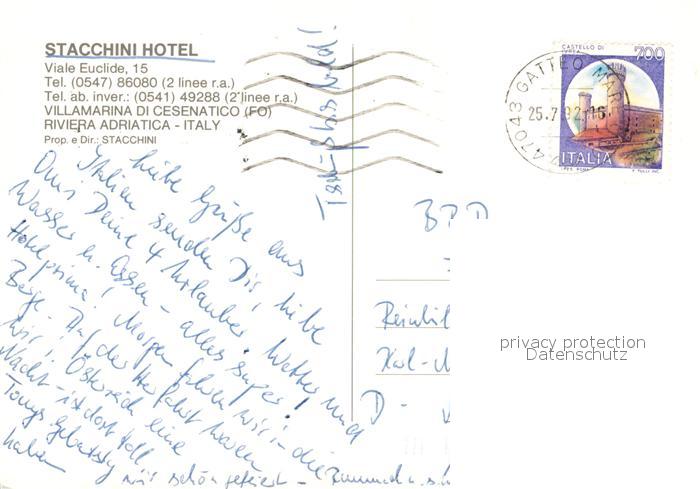 STACCHINI HOTEL
Viale Euclide, 15
Tel. (0547) 86080 (2 linee r.a.)
Tel. ab. inver.: (0541) 49288 (2 linee r.a.)
VILLAMARINA DI CESENATICO (FO)
RIVIERA ADRIATICA - ITALY
Prop. e Dir.: STACCHINI
liebe Grüße aus
Italien senden Dir, liebe
Omi Deine 4 Urlauber. Wetter und
Wasser u. Essen - alles super!
Hotel prima! Morgen fahren wir in die
Berge. Auf der Herfahrt waren
wir i. Österreich eine
Nacht - ist dort toll.
Tonys Geburtstag
haben wir schön gefeiert -
Tschüß
CASTELLO DI
IVREA
700
ITALIA
47043 GATTEO MAR
25.7.92-16
BRD
Reinhil
Karl-M
D -
privacy protection
Datenschutz